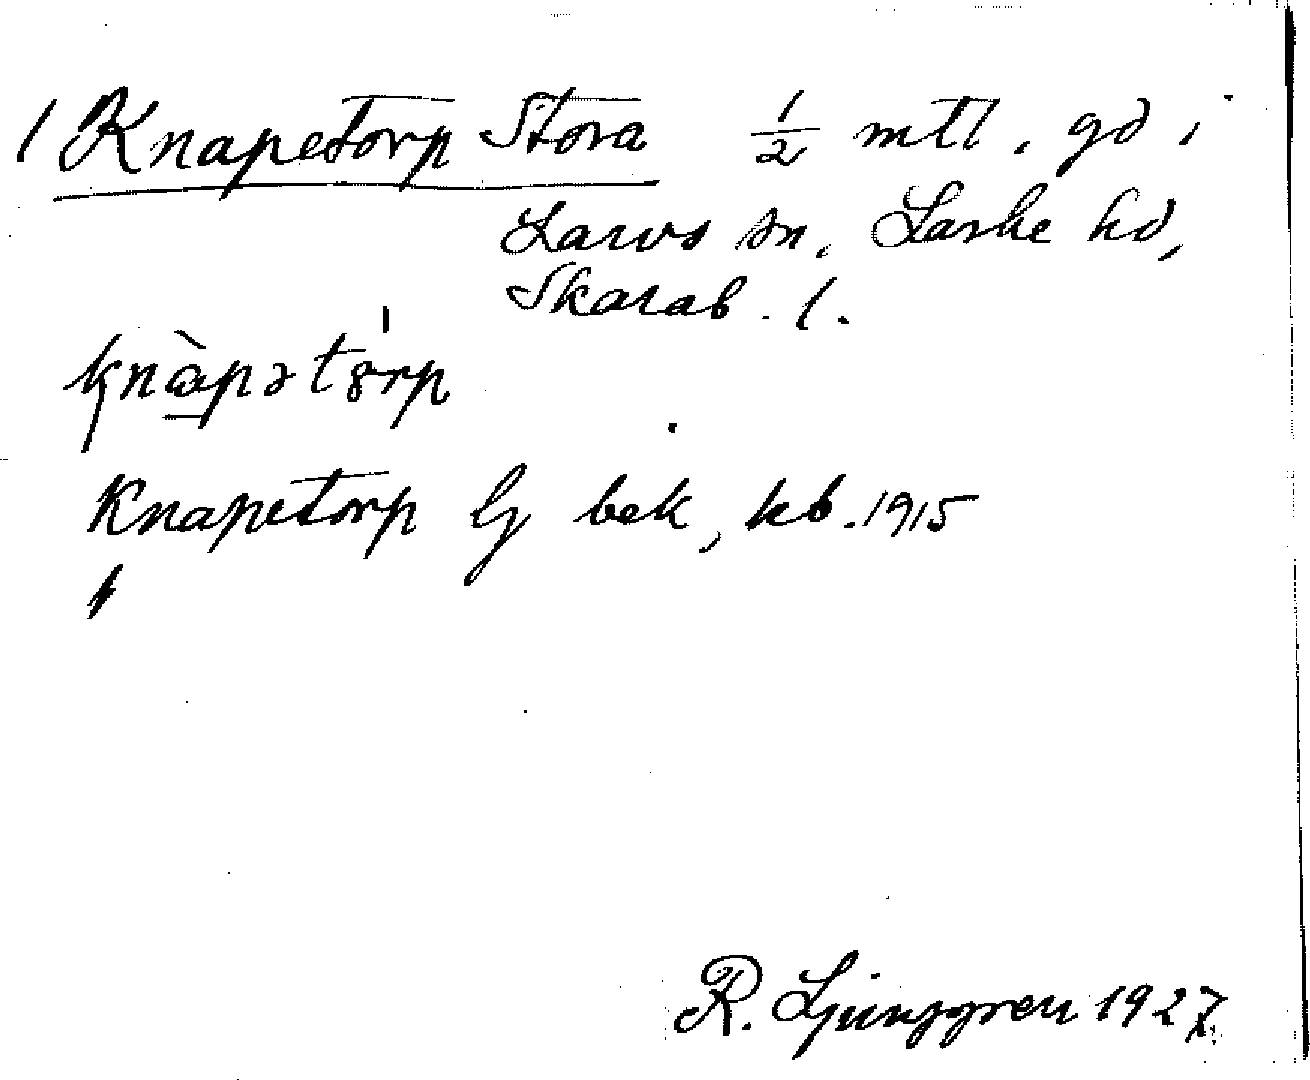 1 Knapetorp Stora 1/2 mtl. gd i
Larvs sn, Laske hd,
Skarab. l.
knàpətɷrp
Knapetorp Lj bek, kb. 1915
R. Ljunggren 1927